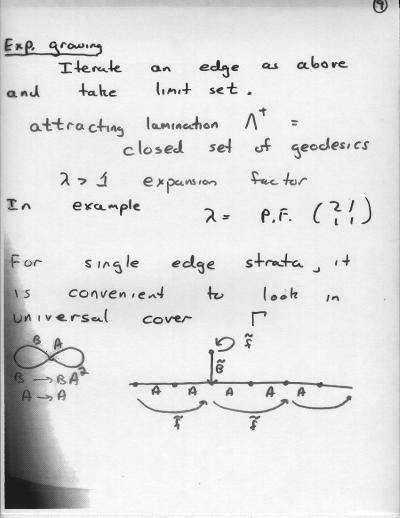 9
Exp. growing
Iterate an edge as above
and take limit set.
attracting lamination Λ⁺ =
closed set of geodesics
λ > 1 expansion factor
In example λ = P.F. (2 1
1 1)
For single edge strata, it
is convenient to look in
universal cover Γ̃
B A
B → BA²
A → A
f̃
B̃
A A A A A
f̃ f̃